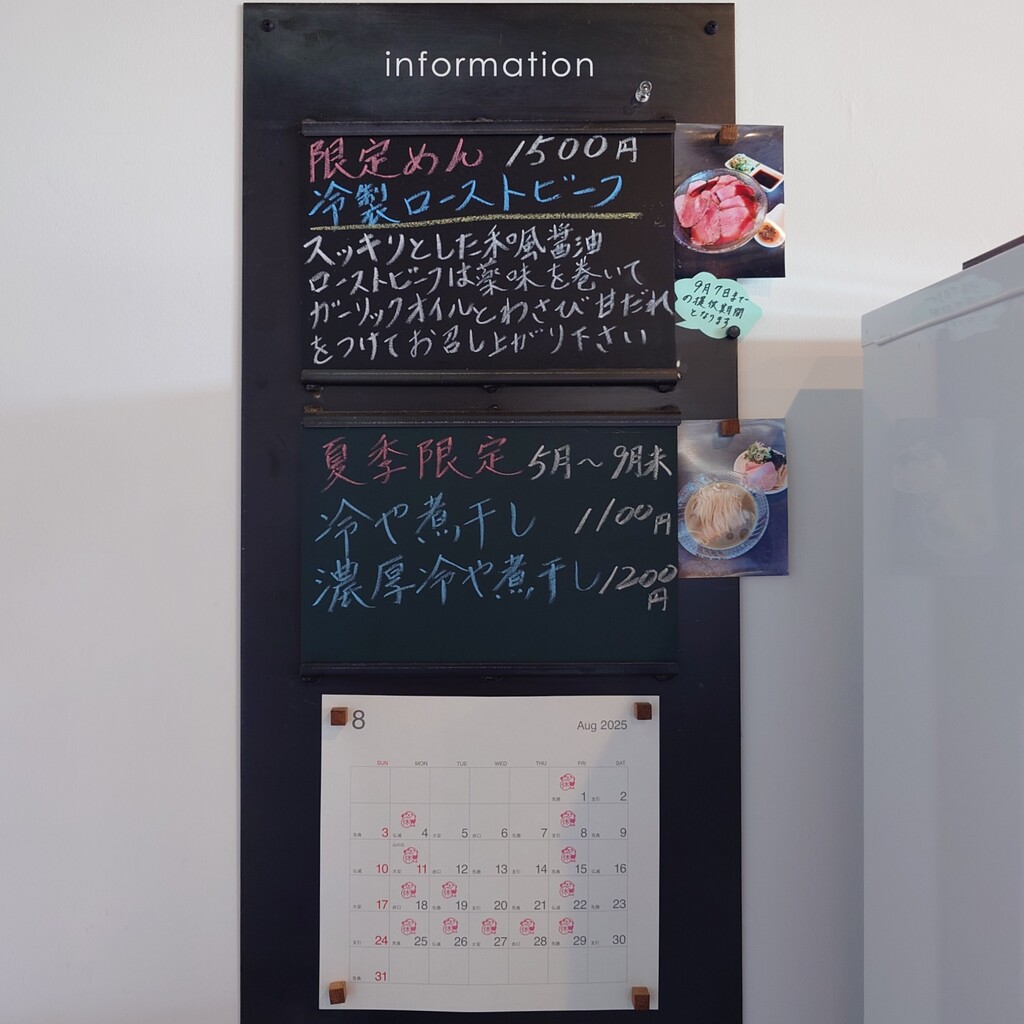 information
限定めん 1500円
冷製ローストビーフ
スッキリとした和風醤油
ローストビーフは薬味を巻いて
ガーリックオイルとわさび甘だれ
をつけてお召し上がり下さい
9月7日まで
の提供期間
となります
夏季限定 5月〜9月末
冷や煮干し 1100円
濃厚冷や煮干し 1200円
8 Aug 2025
SUN MON TUE WED THU FRI SAT
1 2
3 4 5 6 7 8 9
10 11 12 13 14 15 16
17 18 19 20 21 22 23
24 25 26 27 28 29 30
31